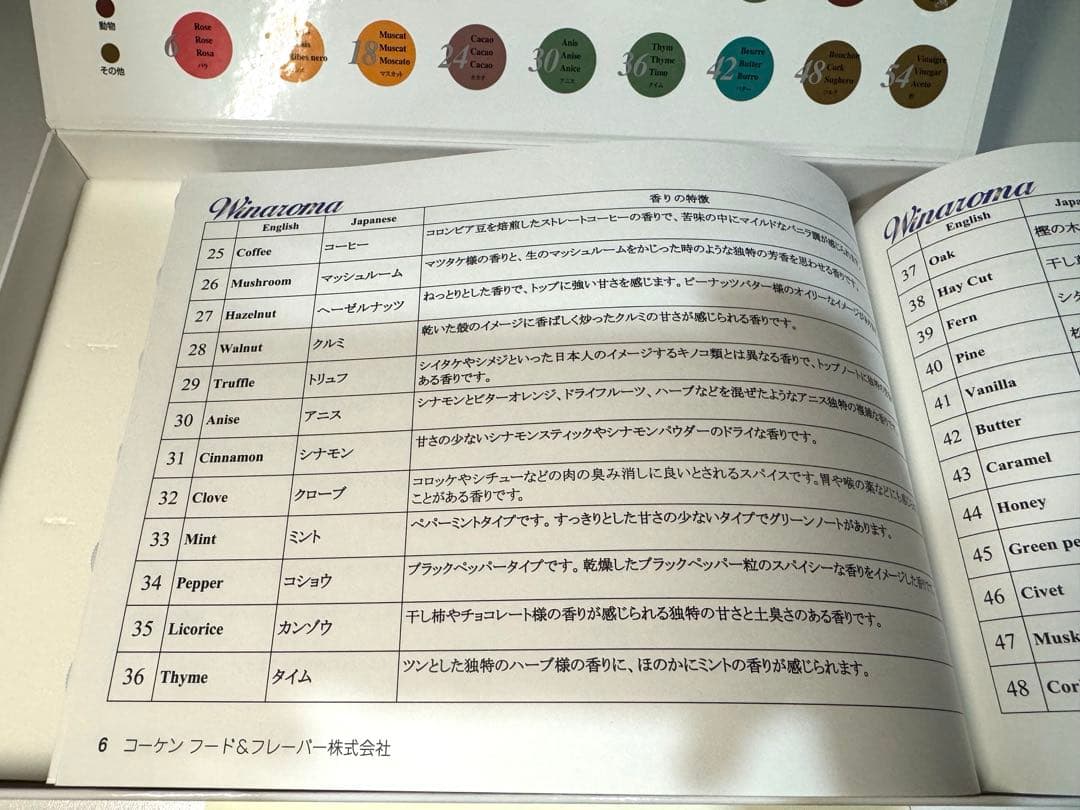 動物
その他
6
Rose
Rose
Rosa
バラ
18
Muscat
Muscat
Moscato
マスカット
24
Cacao
Cacao
Cacao
カカオ
30
Anis
Anise
Anice
アニス
36
Thym
Thyme
Timo
タイム
42
Beurre
Butter
Burro
バター
48
Bouchon
Cork
Sughero
コルク
54
Vinaigre
Vinegar
Aceto
酢
Winaroma
English Japanese 香りの特徴
25 Coffee コーヒー コロンビア豆を焙煎したストレートコーヒーの香りで、苦味の中にマイルドなバニラ調が感じられます。
26 Mushroom マッシュルーム マツタケ様の香りと、生のマッシュルームをかじった時のような独特の芳香を思わせる香りです。
27 Hazelnut ヘーゼルナッツ ねっとりとした香りで、トップに強い甘さを感じます。ピーナッツバター様のオイリーなイメージが
28 Walnut クルミ 乾いた殻のイメージに香ばしく炒ったクルミの甘さが感じられる香りです。
29 Truffle トリュフ シイタケやシメジといった日本人のイメージするキノコ類とは異なる香りで、トップノートに
ある香りです。
30 Anise アニス シナモンとビターオレンジ、ドライフルーツ、ハーブなどを混ぜたようなアニス独特の複雑な香りです
31 Cinnamon シナモン 甘さの少ないシナモンスティックやシナモンパウダーのドライな香りです。
32 Clove クローブ コロッケやシチューなどの肉の臭み消しに良いとされるスパイスです。胃や喉の薬などにも
ことがある香りです。
33 Mint ミント ペパーミントタイプです。すっきりとした甘さの少ないタイプでグリーンノートがあります。
34 Pepper コショウ ブラックペッパータイプです。乾燥したブラックペッパー粒のスパイシーな香りをイメージした香りです
35 Licorice カンゾウ 干し柿やチョコレート様の香りが感じられる独特の甘さと土臭さのある香りです。
36 Thyme タイム ツンとした独特のハーブ様の香りに、ほのかにミントの香りが感じられます。
6 コーケン フード&フレーバー株式会社
Winaroma
English Japa
37 Oak 樫の木
38 Hay Cut 干し草
39 Fern シダ
40 Pine 松
41 Vanilla
42 Butter
43 Caramel
44 Honey
45 Green pe
46 Civet
47 Musk
48 Cor